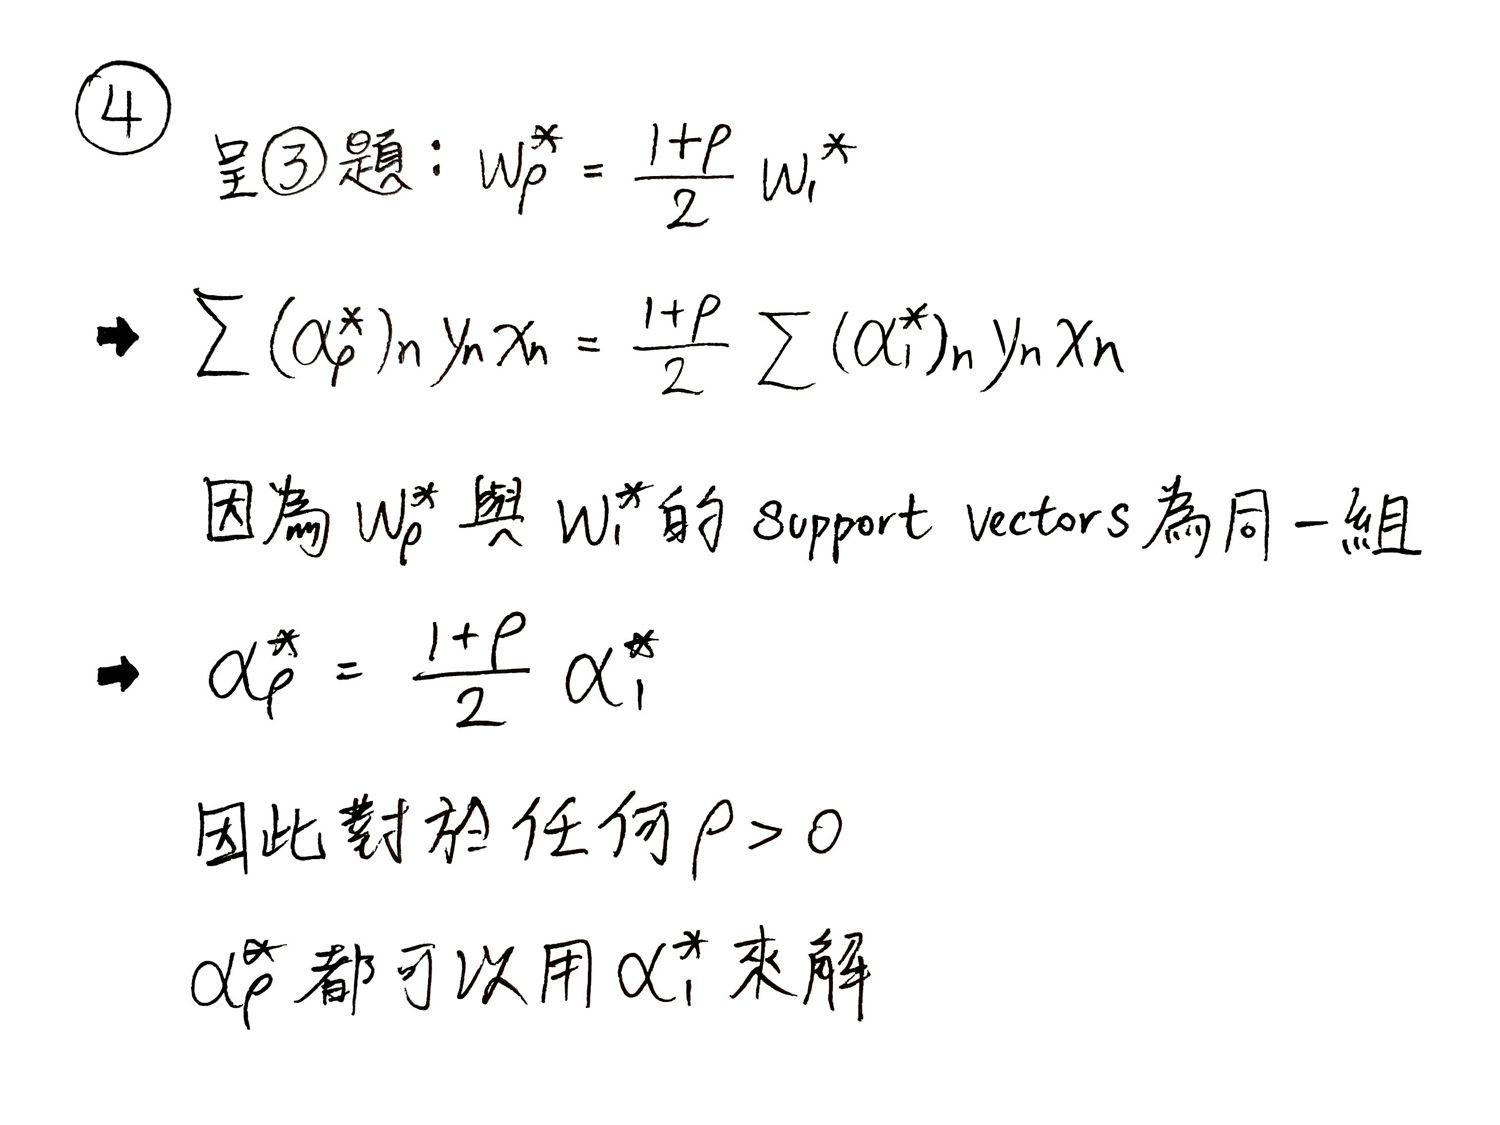 ④
呈③題：w_ρ^* = \frac{1+ρ}{2} w_1^*
➡ ∑(α_ρ^*)_n y_n x_n = \frac{1+ρ}{2} ∑(α_1^*)_n y_n x_n
因為 w_ρ^* 與 w_1^* 的 support vectors 為同一組
➡ α_ρ^* = \frac{1+ρ}{2} α_1^*
因此對於任何 ρ > 0
α_ρ^* 都可以用 α_1^* 來解